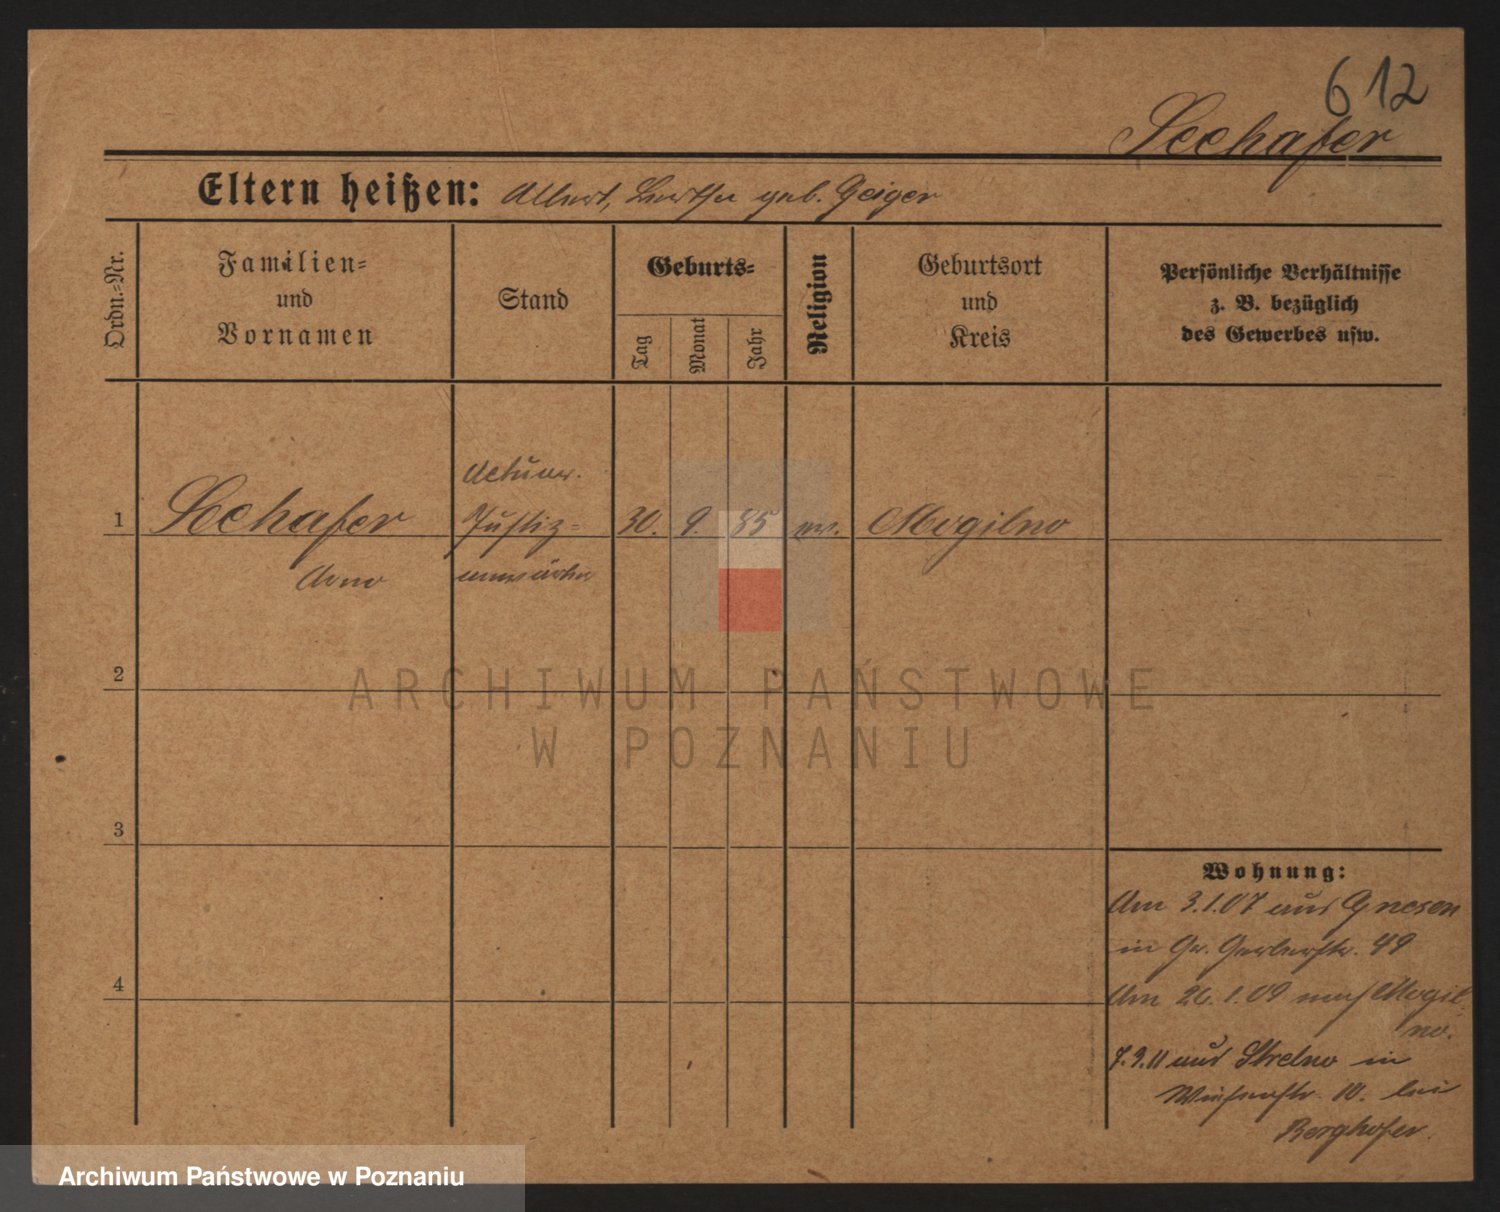 612
Seehafer
Eltern heißen: Albert, Bertha geb. Geiger
Ordn.-Nr.
Familien-
und
Vornamen
Stand
Geburts-
Tag
Monat
Jahr
Religion
Geburtsort
und
Kreis
Persönliche Verhältnisse
z. B. bezüglich
des Gewerbes usw.
Actuar.
1 Seehafer Justiz- 30. 9. 85 ev. Mogilno
Arno anwärter
2
ARCHIWUM PAŃSTWOWE
W POZNANIU
3
Wohnung:
Am 3.1.07 aus Gnesen
in Gr. Gerberstr. 49
4
Am 26.1.09 nach Mogil
no.
7.3.11 aus Strelno in
10. bei
Berghofer.
Archiwum Państwowe w Poznaniu